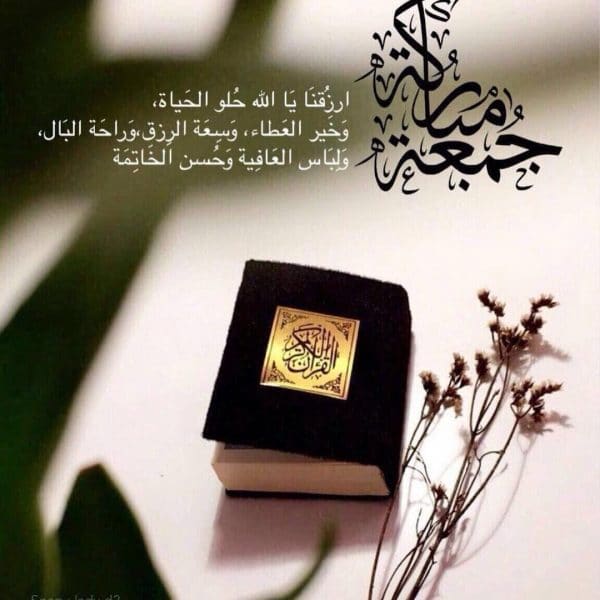 جُمعة
مباركة
ارزُقنَا يَا الله حُلو الحَياة،
وَخَير العَطاء، وَسِعَة الرِزق،وَراحَة البَال،
وَلِبَاس العَافِية وَحُسن الخَاتِمَة
القرآن الكريم